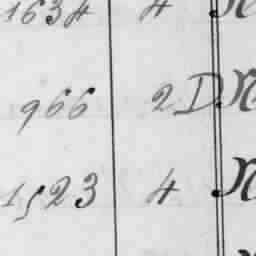 1634 4
966 2D
1523 4